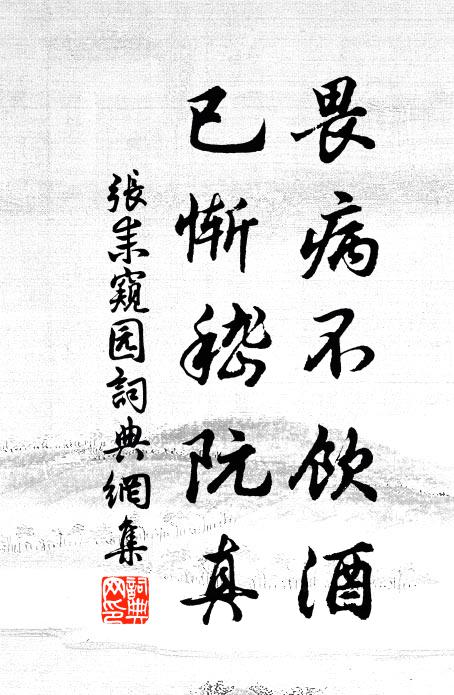 畏病不飲酒
已慚嵇阮真
張耒窺园詞典網集
詞典网印